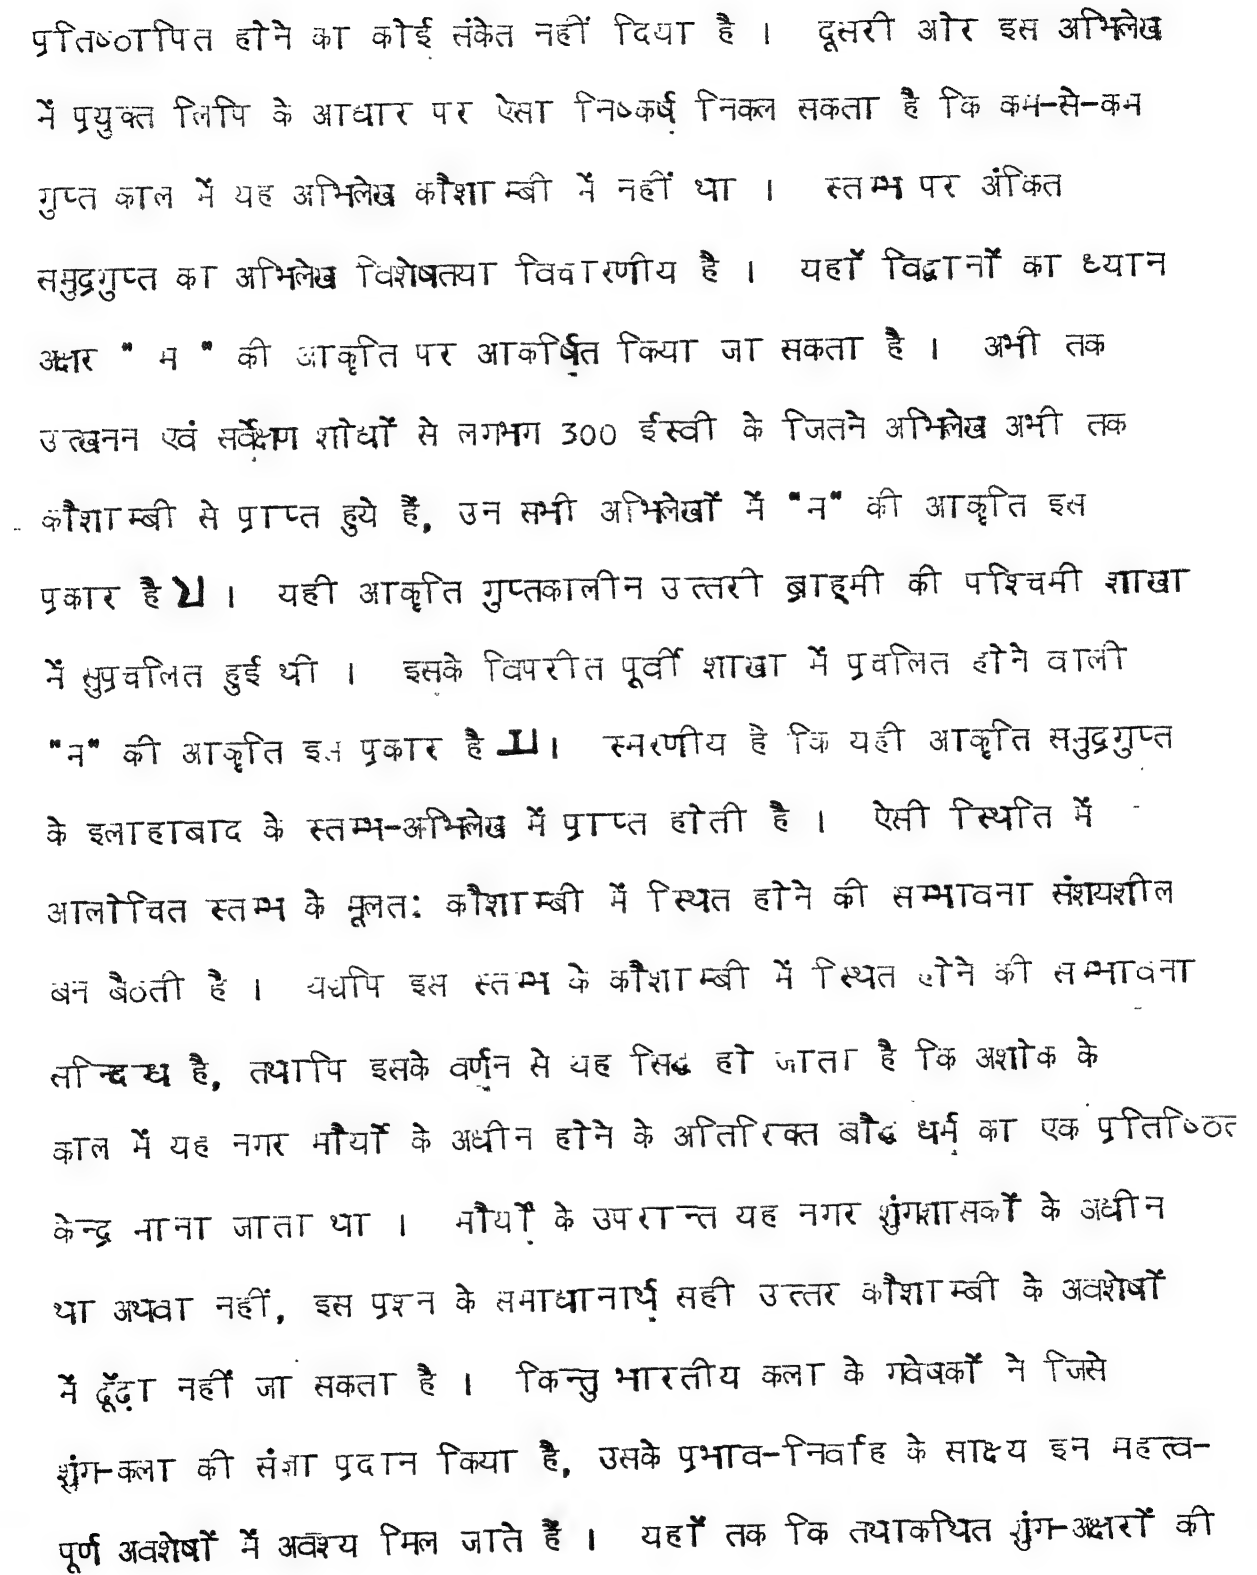 प्रतिष्ठापित होने का कोई संकेत नहीं दिया है । दूसरी ओर इस अभिलेख
में प्रयुक्त लिपि के आधार पर ऐसा निष्कर्ष निकल सकता है कि कम-से-कम
गुप्त काल में यह अभिलेख कौशाम्बी में नहीं था । स्तम्भ पर अंकित
समुद्रगुप्त का अभिलेख विशेषतया विचारणीय है । यहाँ विद्वानों का ध्यान
अक्षर " म " की आकृति पर आकर्षित किया जा सकता है । अभी तक
उत्खनन एवं सर्वेक्षण शोधों से लगभग 300 ईस्वी के जितने अभिलेख अभी तक
कौशाम्बी से प्राप्त हुये हैं, उन सभी अभिलेखों में "म" की आकृति इस
प्रकार है । यही आकृति गुप्तकालीन उत्तरी ब्राह्मी की पश्चिमी शाखा
में सुप्रचलित हुई थी । इसके विपरीत पूर्वी शाखा में प्रचलित होने वाली
"म" की आकृति इस प्रकार है । स्मरणीय है कि यही आकृति समुद्रगुप्त
के इलाहाबाद के स्तम्भ-अभिलेख में प्राप्त होती है । ऐसी स्थिति में
आलोचित स्तम्भ के मूलत: कौशाम्बी में स्थित होने की सम्भावना संशयशील
बन बैठती है । यद्यपि इस स्तम्भ के कौशाम्बी में स्थित होने की सम्भावना
सन्दिग्ध है, तथापि इसके वर्णन से यह सिद्ध हो जाता है कि अशोक के
काल में यह नगर मौर्यों के अधीन होने के अतिरिक्त बौद्ध धर्म का एक प्रतिष्ठित
केन्द्र माना जाता था । मौर्यों के उपरान्त यह नगर शुंगशासकों के अधीन
था अथवा नहीं, इस प्रश्न के समाधानार्थ सही उत्तर कौशाम्बी के अवशेषों
में ढूँढ़ा नहीं जा सकता है । किन्तु भारतीय कला के गवेषकों ने जिसे
शुंग-कला की संज्ञा प्रदान किया है, उसके प्रभाव-निर्वाह के साक्ष्य इन महत्त्व-
पूर्ण अवशेषों में अवश्य मिल जाते हैं । यहाँ तक कि तथाकथित शुंग-अक्षरों की